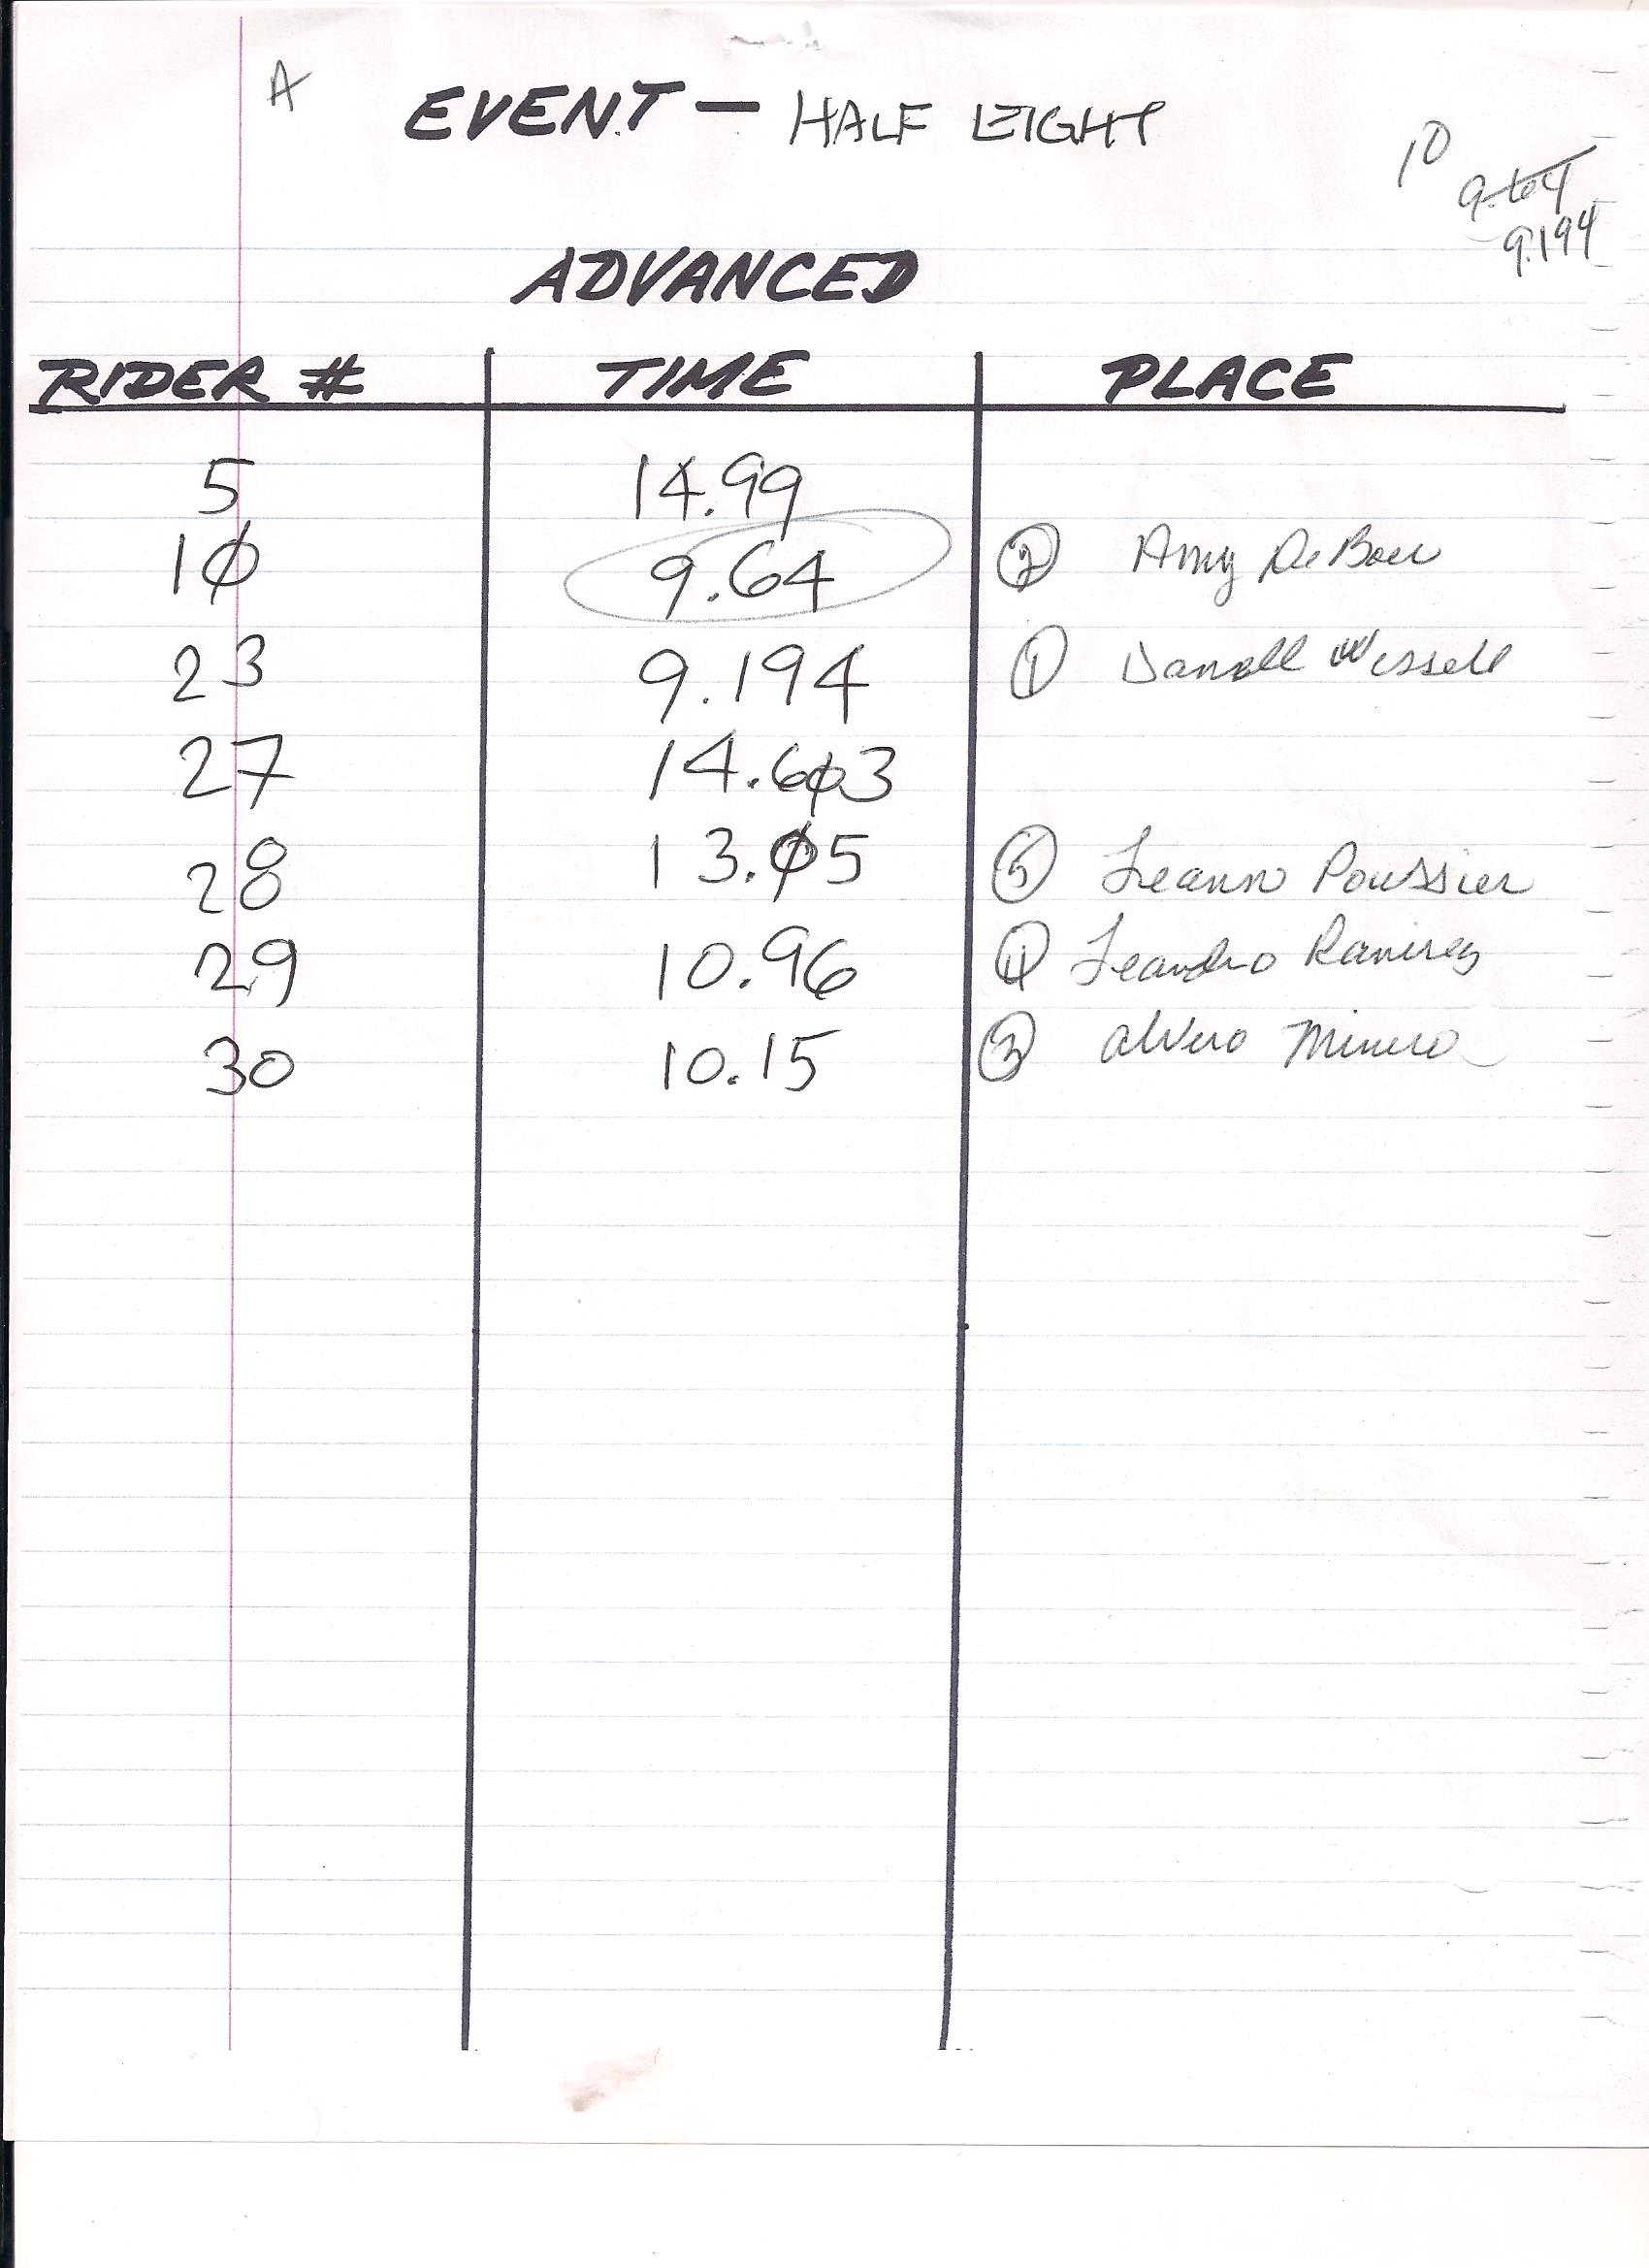 A
EVENT — HALF EIGHT
10
9.64
9.194
ADVANCED
RIDER # TIME PLACE
5 14.99
10 9.64 2 Amy DeBoer
23 9.194 1 Darrell Wessell
27 14.603
28 13.05 5 Leann Poussier
29 10.96 4 Leandro Ramirez
30 10.15 3 Alvero Minero